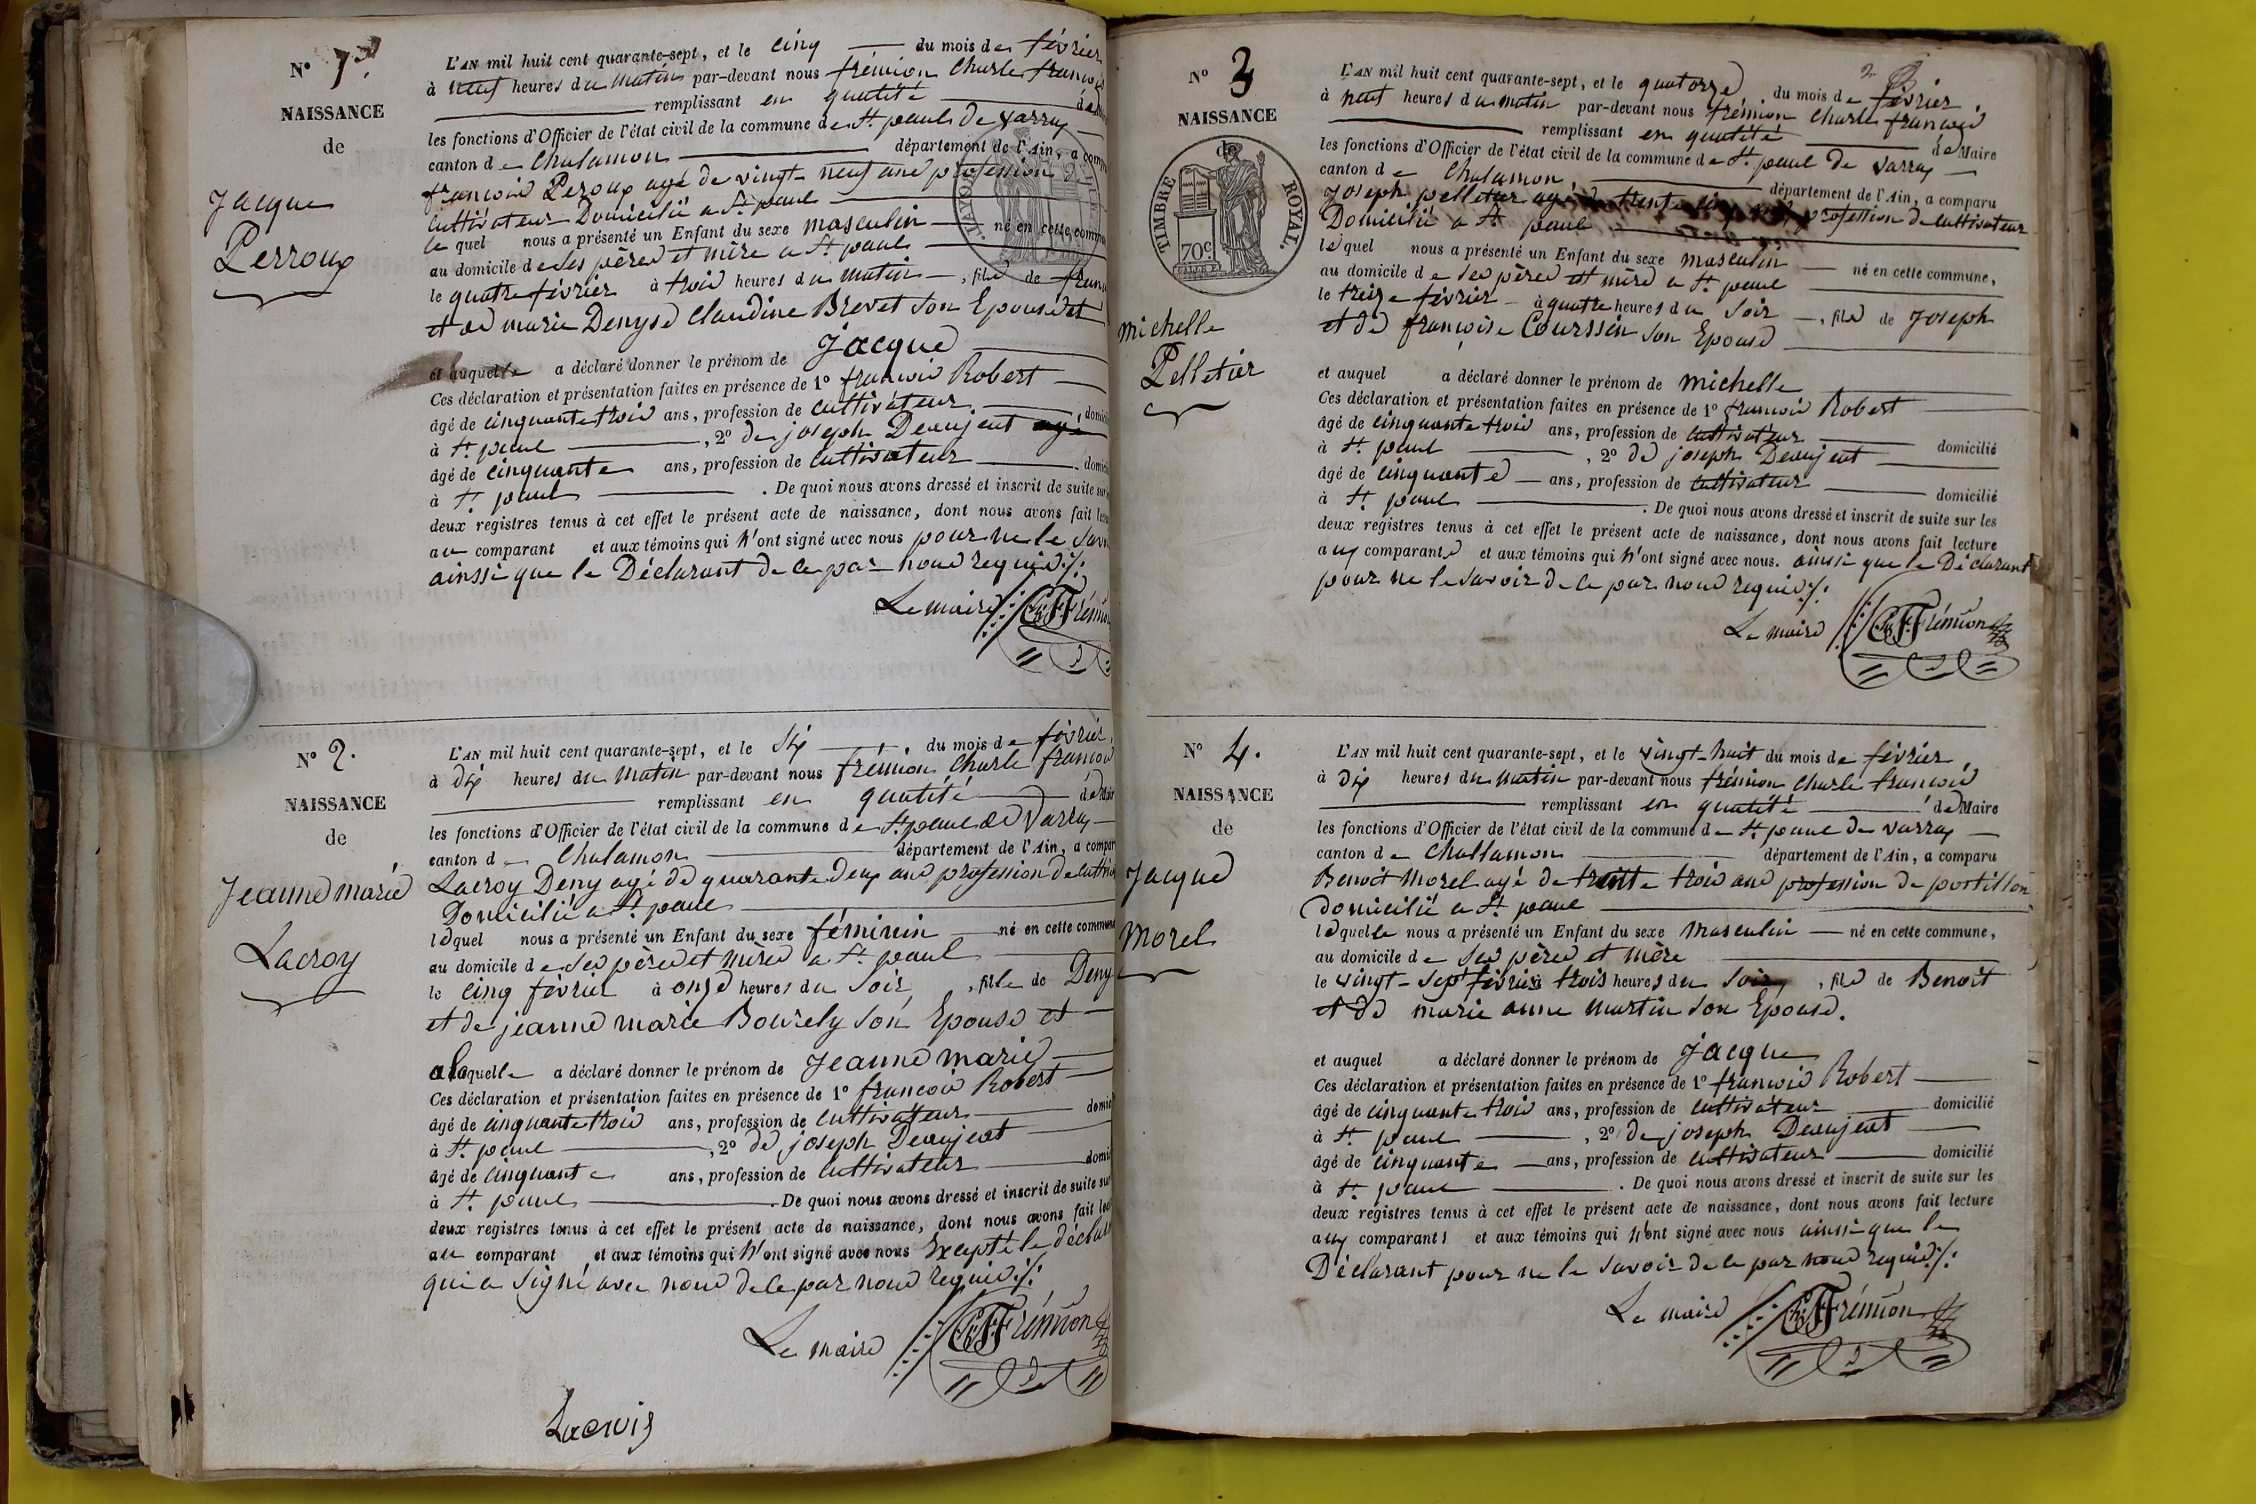 N° 1er
NAISSANCE
de
Jacque
Perroux
L'AN mil huit cent quarante-sept, et le cinq du mois de février
à neuf heures du matin par-devant nous frémion Charle françois
remplissant en quatité de
les fonctions d'Officier de l'état civil de la commune de St. paul de varax
canton de Chalamon département de l'Ain, a comp
françois Peroux agé de vingt-neuf ans profession de
Cultivateur Domicilié a St. paul
le quel nous a présenté un Enfant du sexe masculin né en cette commu
au domicile de ses pères et mère a St. paul
le quatre février à trois heures du matin, fils de franç
et de marie Denyse Claudine Brevet son Epouse et
et auquelle a déclaré donner le prénom de Jacque
Ces déclaration et présentation faites en présence de 1° françois Robert
âgé de cinquante trois ans, profession de cultivateur domici
à St. paul, 2° de joseph Deaujeat agé
âgé de cinquante ans, profession de cultivateur domici
à St. paul. De quoi nous avons dressé et inscrit de suite sur
deux registres tenus à cet effet le présent acte de naissance, dont nous avons fait lec
au comparant et aux témoins qui n'ont signé avec nous pour ne le savoi
ainssi que le Déclarant de ce par nous requis ./.
Le maire Ch F Frémion
N° 2.
NAISSANCE
de
Jeanne marie
Lacroy
L'AN mil huit cent quarante-sept, et le six du mois de février
à dix heures du matin par-devant nous frémion Charle françois
remplissant en quatité de Mair
les fonctions d'Officier de l'état civil de la commune de St. paul de Varax
canton de Chalamon département de l'Ain, a compar
Lacroy Deny agé de quarante deux ans profession de cultiv
Domicilié a St. paul
lequel nous a présenté un Enfant du sexe féminin né en cette commune
au domicile de ses pères et mères a St. paul
le cinq février à onze heures du soir, fille de Deny
et de jeanne marie Bourely son Epouse et
a laquelle a déclaré donner le prénom de Jeanne marie
Ces déclaration et présentation faites en présence de 1° françois Robert
âgé de cinquante trois ans, profession de cultivateur domic
à St. paul, 2° de joseph Deaujeat
âgé de cinquante ans, profession de cultivateur domi
à St. paul. De quoi nous avons dressé et inscrit de suite sur
deux registres tenus à cet effet le présent acte de naissance, dont nous avons fait lec
au comparant et aux témoins qui n'ont signé avec nous Excepté le déclar
qui a signé avec nous de ce par nous requis ./.
Le maire Ch F Frémion
Lacroix
2
N° 3
NAISSANCE
de
TIMBRE ROYAL.
70 c.
michelle
Pelletier
L'AN mil huit cent quarante-sept, et le quatorze du mois de février,
à neuf heures du matin par-devant nous frémion Charle françois
remplissant en quatité de Maire
les fonctions d'Officier de l'état civil de la commune de St. paul de varax
canton de Chalamon département de l'Ain, a comparu
Joseph pelletier agé de trente cinq profession de Cultivateur
Domicilié a St. paul
le quel nous a présenté un Enfant du sexe masculin né en cette commune,
au domicile de ses pères et mère a St. paul
le treize février à quatre heures du soir, fils de Joseph
et de françoise Courssin son Epouse
et auquel a déclaré donner le prénom de michelle
Ces déclaration et présentation faites en présence de 1° françois Robert
âgé de cinquante trois ans, profession de cultivateur domicilié
à St. paul, 2° de joseph Deaujeat
âgé de cinquante ans, profession de cultivateur domicilié
à St. paul. De quoi nous avons dressé et inscrit de suite sur les
deux registres tenus à cet effet le présent acte de naissance, dont nous avons fait lecture
aux comparants et aux témoins qui n'ont signé avec nous. ainssi que le Déclarant
pour ne le savoir de ce par nous requis ./.
Le maire Ch F Frémion
N° 4.
NAISSANCE
de
Jacque
Morel
L'AN mil huit cent quarante-sept, et le vingt-huit du mois de février
à dix heures du matin par-devant nous frémion Charle françois
remplissant en quatité de Maire
les fonctions d'Officier de l'état civil de la commune de St. paul de varax
canton de Challamon département de l'Ain, a comparu
Benoit Morel agé de trente trois ans profession de postillon
domicilié a St. paul
lequelle nous a présenté un Enfant du sexe masculin né en cette commune,
au domicile de ses pères et mère
le vingt-sept février à trois heures du soir, fils de Benoit
et de marie anne Martin son Epouse.
et auquel a déclaré donner le prénom de Jacque
Ces déclaration et présentation faites en présence de 1° françois Robert
âgé de cinquante trois ans, profession de cultivateur domicilié
à St. paul, 2° de joseph Deaujeat
âgé de cinquante ans, profession de cultivateur domicilié
à St. paul. De quoi nous avons dressé et inscrit de suite sur les
deux registres tenus à cet effet le présent acte de naissance, dont nous avons fait lecture
aux comparants et aux témoins qui n'ont signé avec nous ainssi que le
Déclarant pour ne le savoir de ce par nous requis ./.
Le maire Ch F Frémion